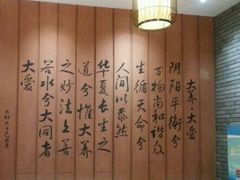 大养·大爱
阴阳平衡兮
万物尚和谐众
生循天命兮
人间以泰然
华夏长生之
道兮惟大养
之妙法上善
若水兮大同者
大爱